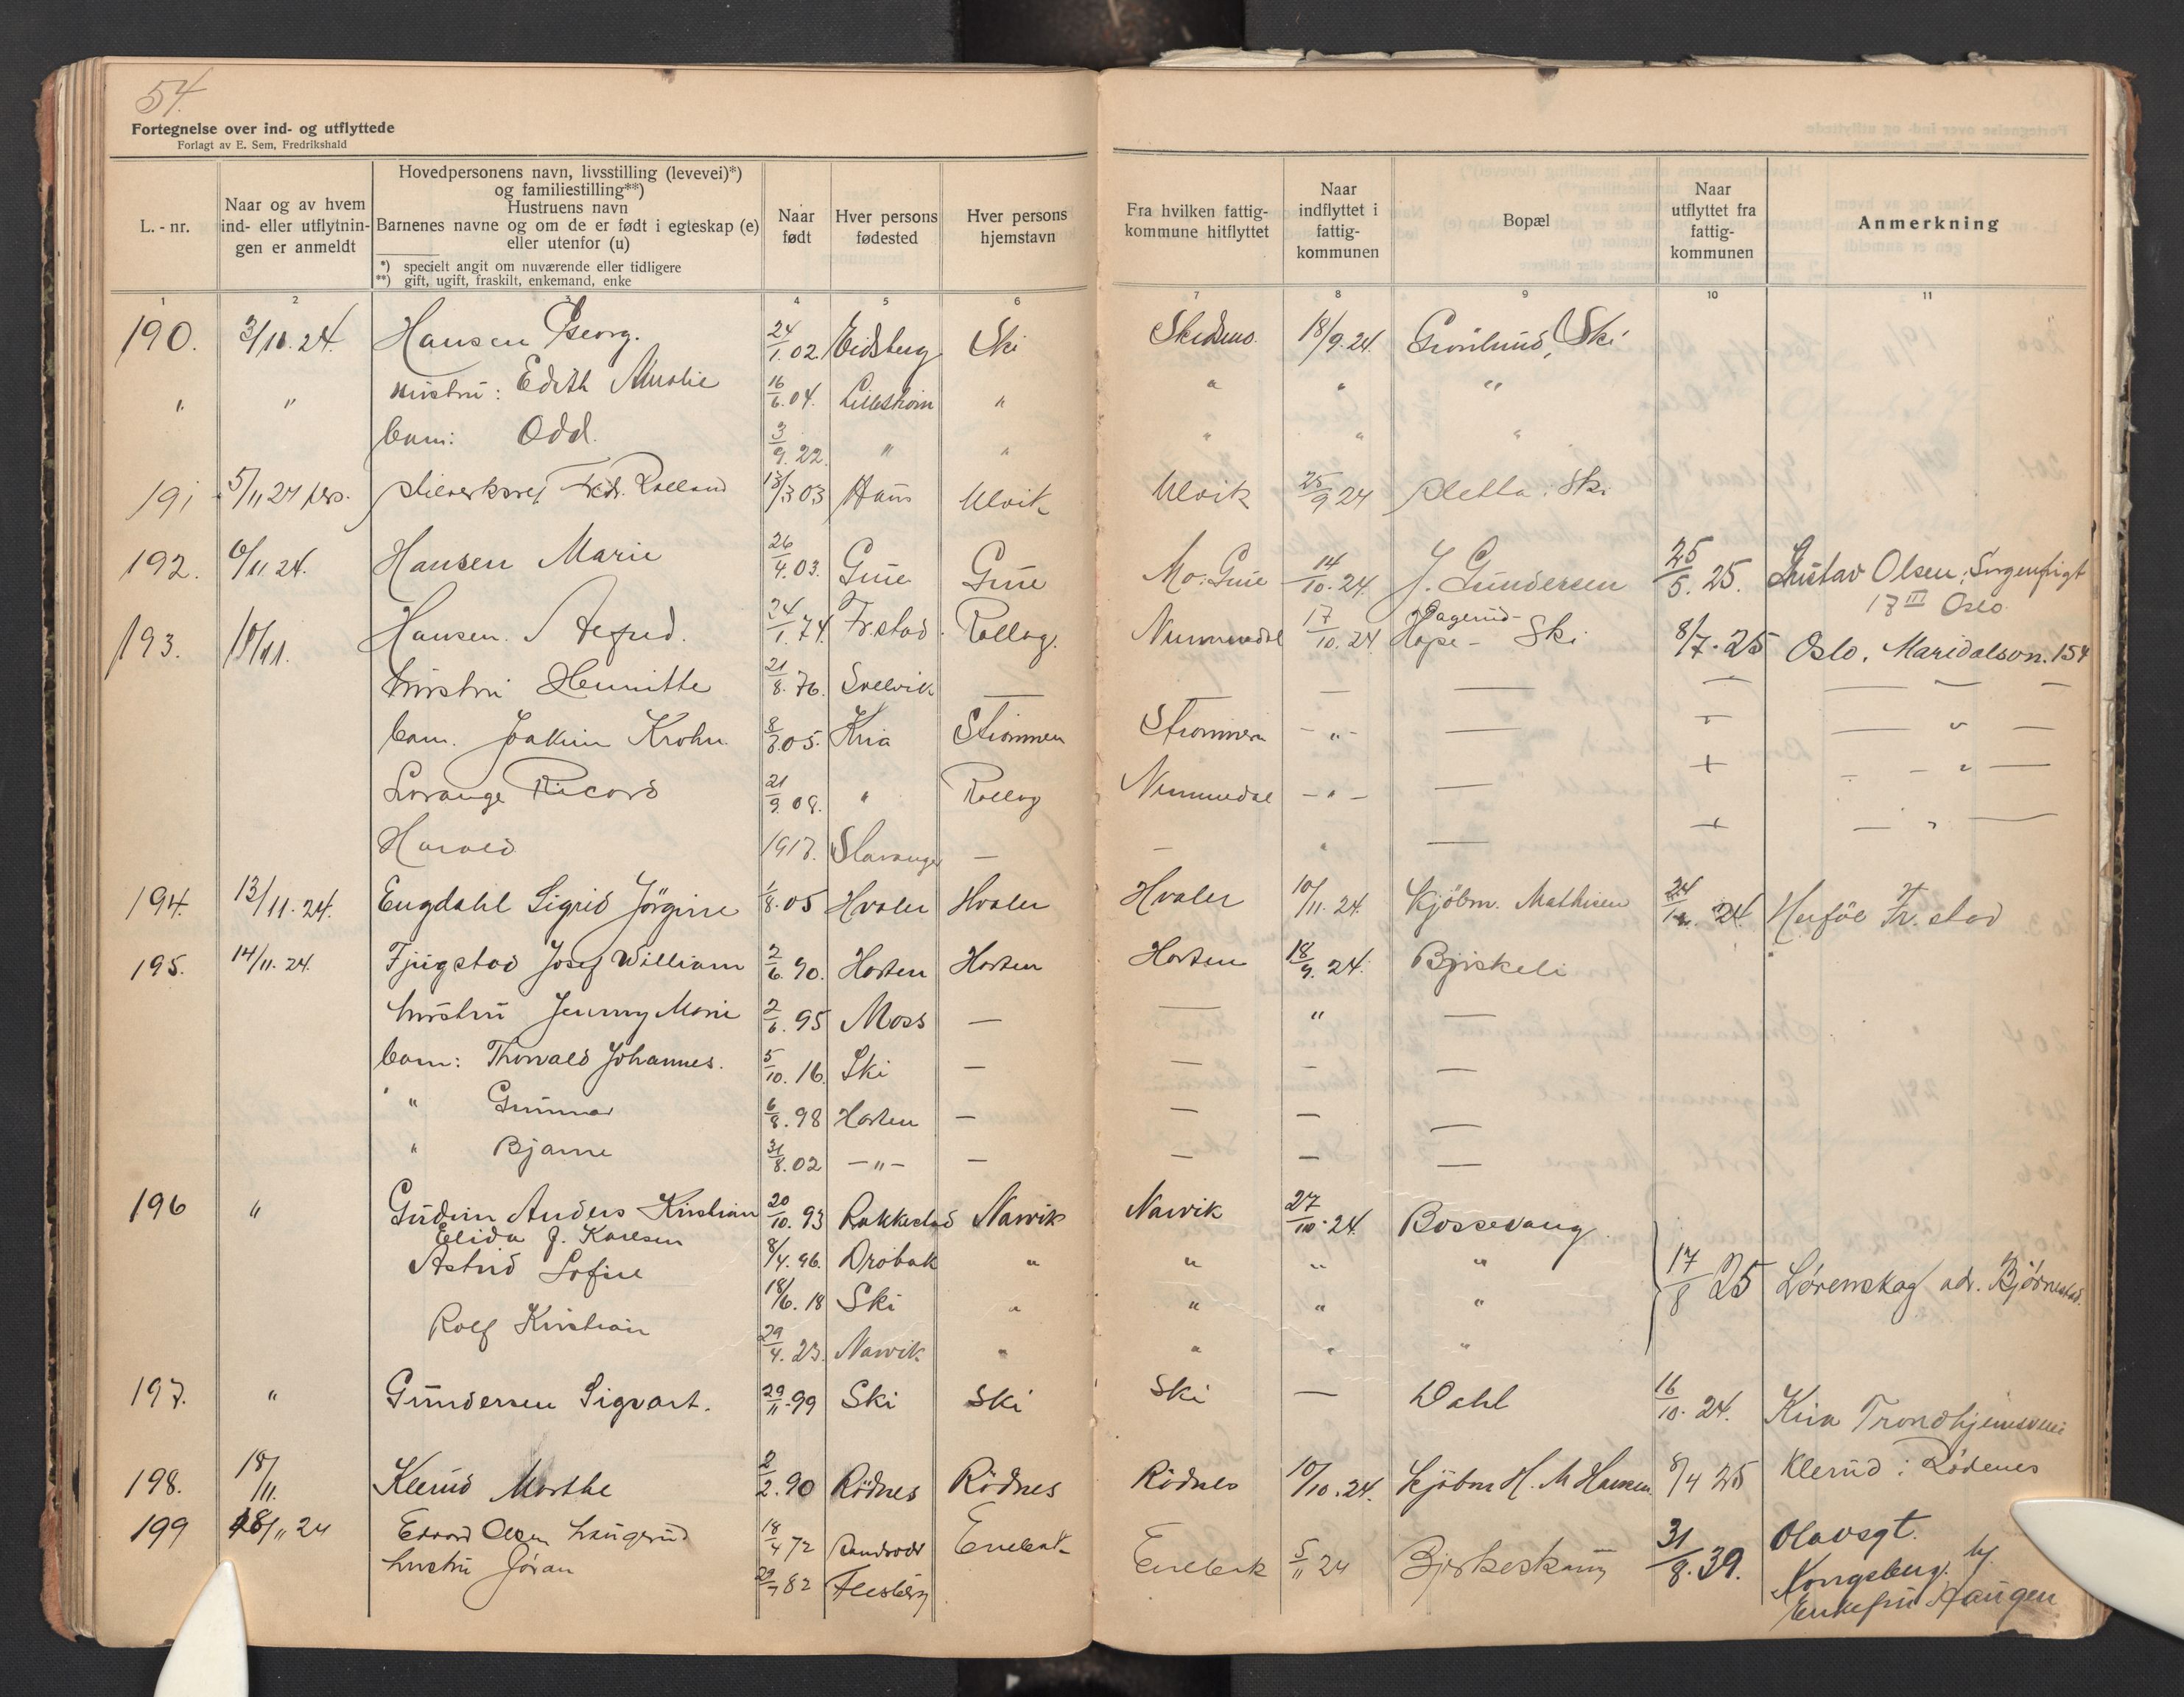 54.
Fortegnelse over ind- og utflyttede
Forlagt av E. Sem, Fredrikshald
L. - nr.
Naar og av hvem ind- eller utflytnin-gen er anmeldt
Hovedpersonens navn, livsstilling (levevei)*)
og familiestilling**)
Hustruens navn
Barnenes navne og om de er født i egteskap (e)
eller utenfor (u)
*) specielt angit om nuværende eller tidligere
**) gift, ugift, fraskilt, enkemand, enke
Naar født
Hver persons fødested
Hver persons hjemstavn
Fra hvilken fattig-kommune hitflyttet
Naar indflyttet i fattig-kommunen
Bopæl
Naar utflyttet fra fattig-kommunen
Anmerkning
1 2 3 4 5 6 7 8 9 10 11
190. 3/11.24. Hansen Georg. 24/1.02 Eidsberg Ski Skedsmo 18/9.24. Grønlund, Ski
" " hustru: Edith Amalie 16/6.04. Lillestrøm " " " "
barn: Odd. 3/9.22. " " " " "
191 5/11 24 Fredr. Rolland 13/3 03 Ulvik Ulvik 25/9 24 Sletta Ski
192. 6/11.24. Hansen Marie 26/4.03. Grue Grue Mo: Grue 14/10.24. J. Gundersen 25/5.25. Gustav Olsen, Sorgenfrigt
17 III Oslo
193. 10/11. Hansen. Alfred. 24/1.74. Fr.stad. Rollag. Nummedal 17/10.24. Hagerud- Hope - Ski 8/7.25 Oslo, Maridalsvn. 154
hustru Henriette 21/8.76. Svelvik — — — — — — — —
barn. Joakim Krohn 8/8.05. Kria Strømmen Strømmen - " - — — — " —
Lorange Ricard 21/9.08. " Rollag Nummedal - " - — + - - " —
Harald 1917. Stavanger — — " — + — " —
194. 13/11.24. Engdahl Sigrid Jørgine 1/8.05 Hvaler Hvaler Hvaler 10/11.24. Kjøbm. Mathisen 24/12.24. Herføl Fr.stad
195. 14/11.24. Fjugstad Josef William 2/6.90. Horten Horten Horten 18/9.24. Bjiskeli
hustru Jenny Marie 2/6.95 Moss — — " —
barn: Thorvald Johannes. 5/10.16. Ski — — — —
" Gunnar 6/8.98 Horten — — — —
" Bjarne 31/8.02 — " — — — — —
196 " Gudim Anders Kristian 20/10.93 Rakkestad Narvik Narvik 27/10.24. Bossevang.
Elida J. Karlsen 8/4.96. Drøbak " " " "
Astrid Sofie 18/6.18 Ski " " " " 17/8 25 Lørenskog adr. Bjørnestad.
Rolf Kristian 29/4.23. Narvik " " " "
197. " Gundersen Sigvart. 29/11.99 Ski Ski Ski — Dahl 16/10.24. Kria Trondhjemsvei
198. 18/11. Klerud Marthe 2/2.90 Rödnes Rödnes Rödnes 10/10.24. Kjøbm H. M Hansen. 8/4 25 Klerud i Rødenes
199 18/11 24 Edvard Olsen Haugerud 18/4 72 Enebak Enebak 5/11 24 Bjerkeskaug 31/8.39. Olavsgt.
hustru Jøran 29/7 82 Flesberg Kongsberg. h/
Enkefru Haugen